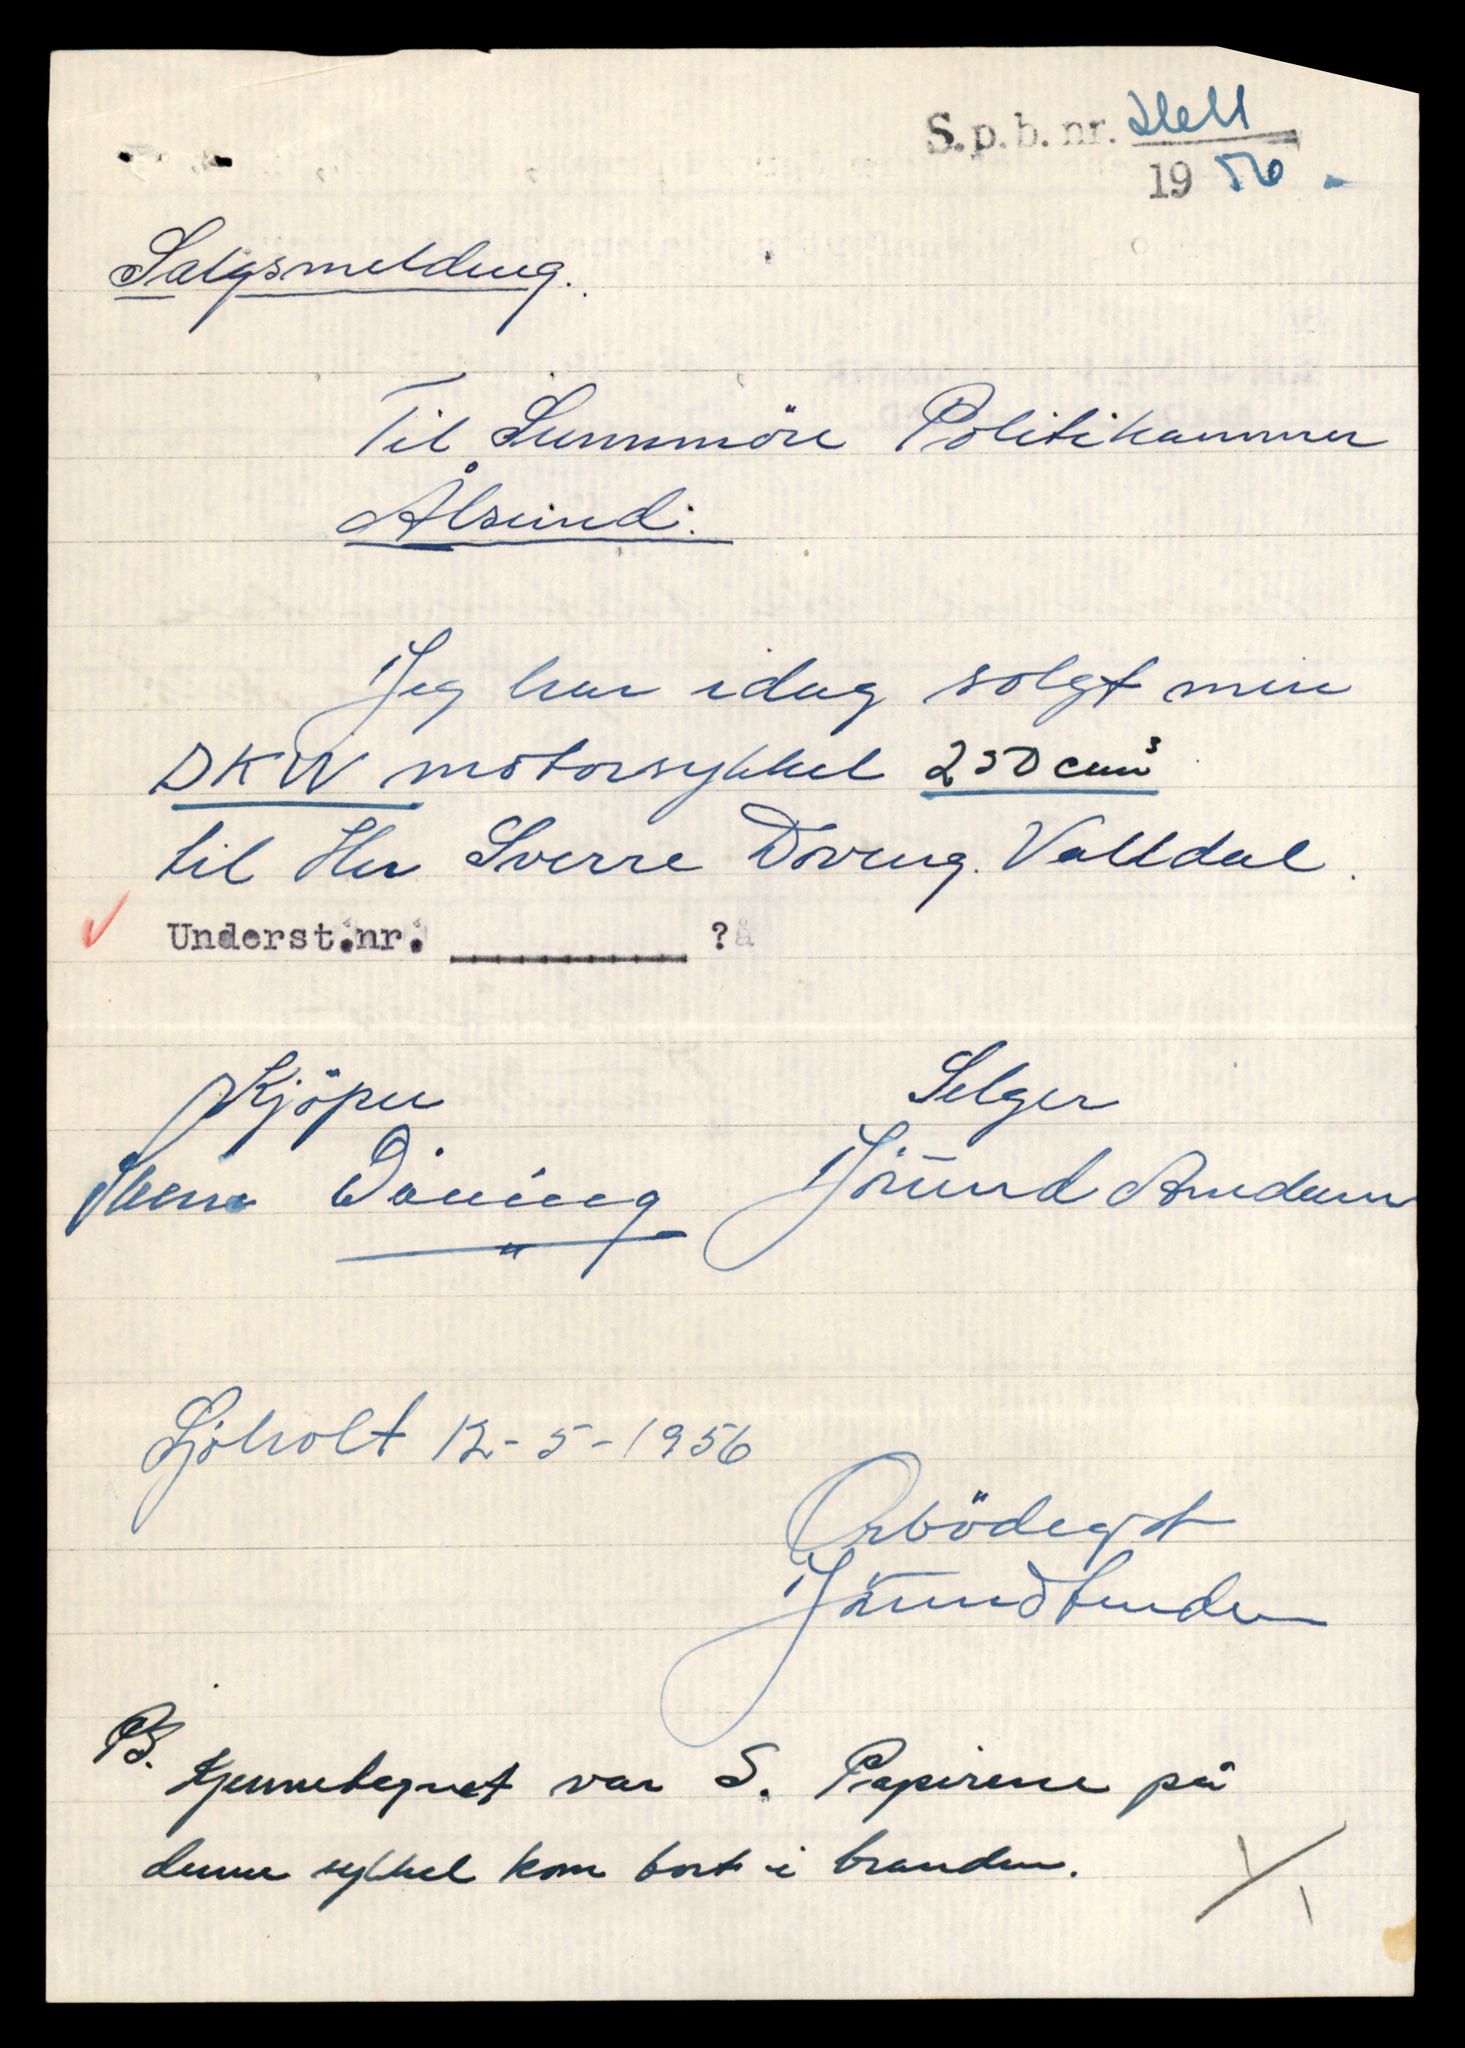 S.p.b.nr.
19 56.
Salgsmelding.
Til Sunnmöre Politikammer
Ålesund.
Jeg har idag solgt min
DKW motorsykkel 250 cm³
til Her Sverre Döving. Valldal.
Underst.nr. ?
Kjöper Selger
Sverre Döving Jörund Amdam
Sjöholt 12-5-1956
Örbödigst
Jörund Amdam
PS.
Kjennetegnet var S. Papirene på
denne sykkel kom bort i branden.